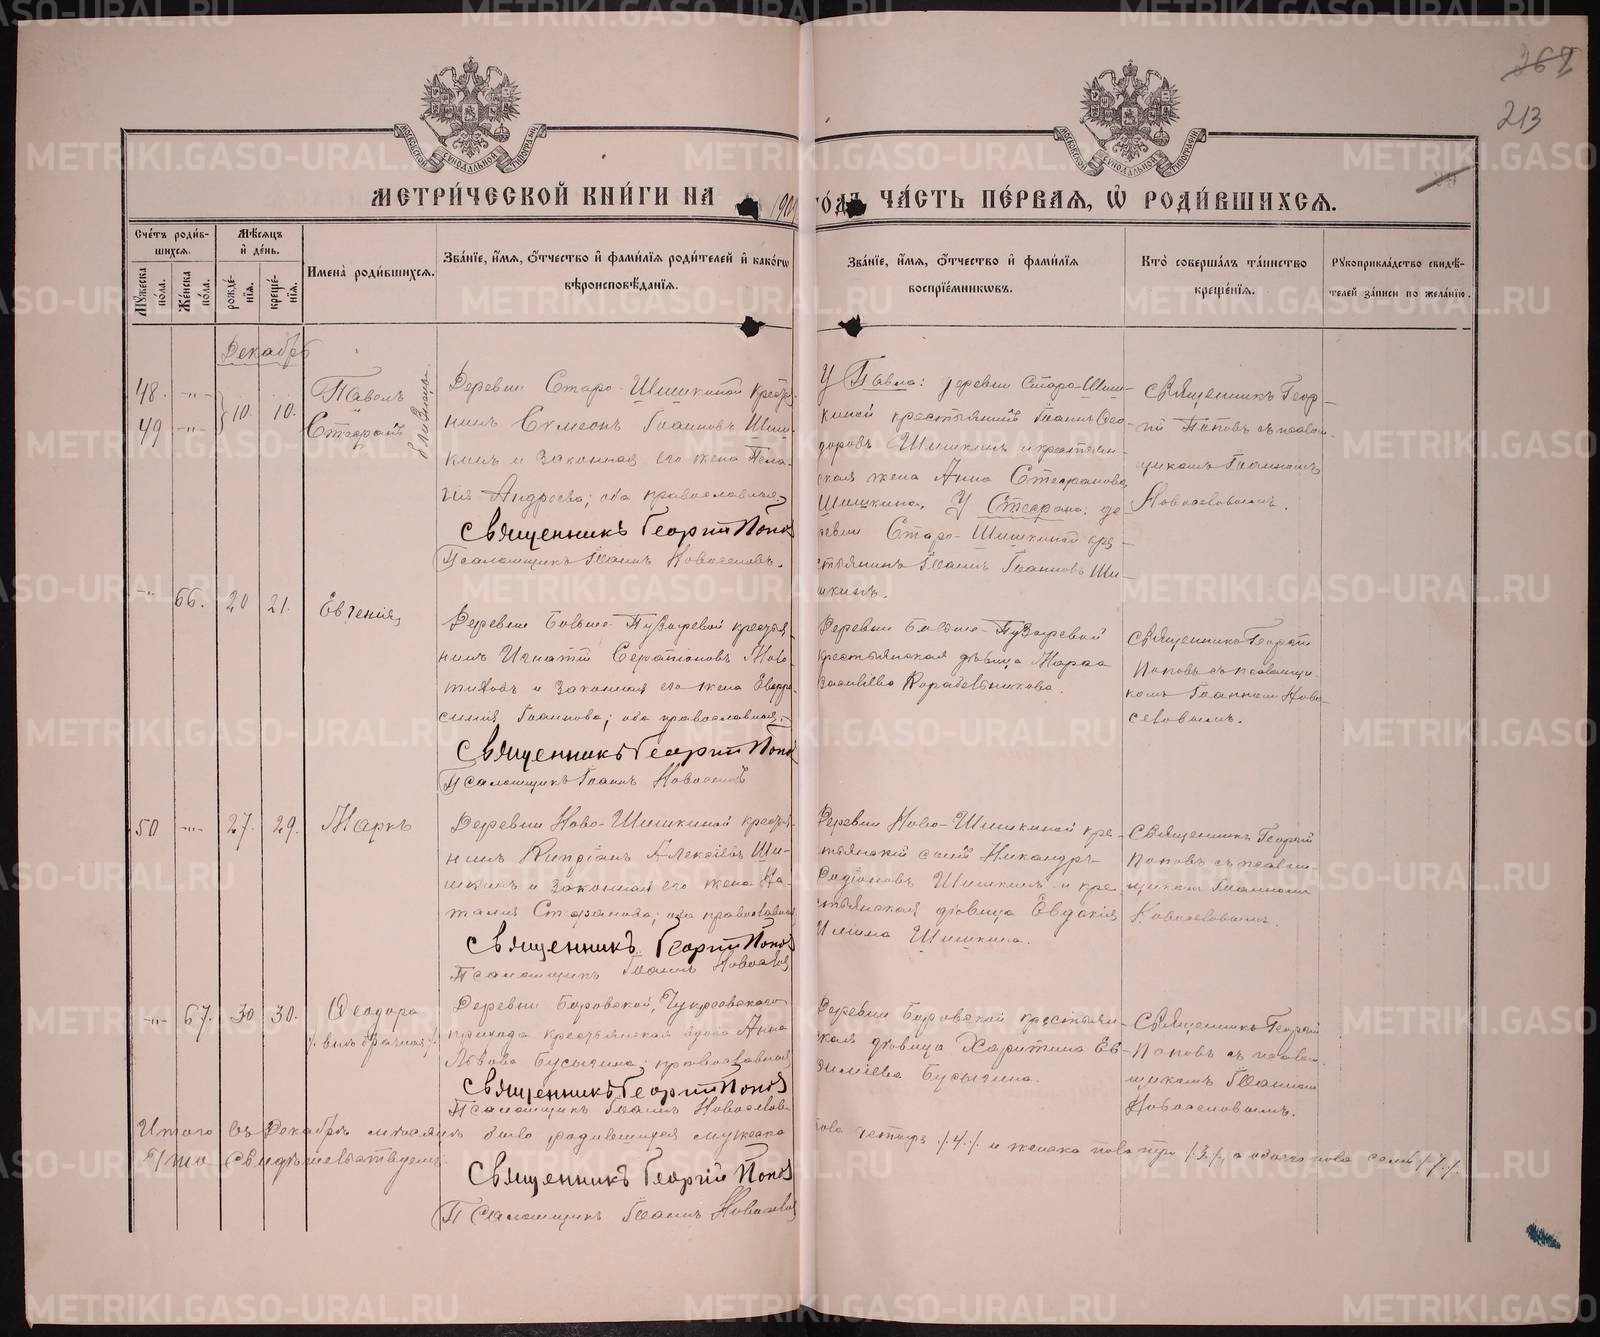 262
213
МОСКОВСКОЙ СѴНОДАЛЬНОЙ ТИПОГРАФІИ
МОСКОВСКОЙ СѴНОДАЛЬНОЙ ТИПОГРАФІИ
МЕТРИ́ЧЕСКОЙ КНИ́ГИ НА ГО́ДЪ ЧА́СТЬ ПЕ́РВАЯ, Ѿ РОДИ́ВШИХСЯ.
Сче́тъ роди́в-
шихся.
Мѣ́сяцъ
и҆ де́нь.
Мꙋ́жеска по́ла.
Же́нска по́ла.
рожде́-
нїѧ.
креще́-
нїѧ.
Имена̀ роди́вшихсѧ.
Зва́нїе, и҆́мѧ, ѻ҆́тчество и҆ фами́лїѧ роди́телей и҆ како́гѡ
вѣроисповѣ́данїѧ.
Зва́нїе, и҆́мѧ, ѻ҆́тчество и҆ фами́лїѧ
воспрїе́мникѡвъ.
Кто̀ соверша́лъ та́инство
креще́нїѧ.
Рꙋкоприкла́дство свидѣ́-
телей за́писи по жела́нїю.
Декабрь
48. -"- 10. 10. Павелъ
49 -"- Стефанъ
близнецы
Деревни Старо-Шишкиной крестья-
нинъ Сѵмеонъ Іоанновъ Шиш-
кинъ и законная его жена Пела-
гія Андреева; оба православные
Священникъ Георгій Попов
Псаломщикъ Іоаннъ Новоселовъ.
У Павла: деревни Старо-Шиш-
киной крестьянинъ Іоаннъ Ѳео-
доровъ Шишкинъ и крестьян-
ская жена Анна Стефанова
Шишкина. У Стефана: де-
ревни Старо-Шишкиной кре-
стьянинъ Іоаннъ Іоанновъ Ши-
шкинъ.
Священникъ Геор-
гій Поповъ съ псалом-
щикомъ Іоанномъ
Новоселовымъ.
-"- 66. 20 21. Евгенія
Деревни Больше-Пузыревой крестья-
нинъ Игнатій Серапіоновъ
и законная его жена Евфро-
синія Іоаннова; оба православные.
Священникъ Георгій Попов
Псаломщикъ Іоаннъ Новоселовъ
Деревни Больше-Пузыревой
крестьянская дѣвица
Васильева Корабельникова.
Священникъ Георгій
Поповъ съ псаломщи-
комъ Іоанномъ Ново-
селовымъ.
50 -"- 27. 29. Маркъ
Деревни Ново-Шишкиной крестья-
нинъ Кипріанъ Алексіевъ Ши-
шкинъ и законная его жена На-
талія Стефанова; оба православные
Священникъ Георгій Попов
Псаломщикъ Іоаннъ Новоселов
Деревни Ново-Шишкиной кре-
стьянскій сынъ Никандръ
Родіоновъ Шишкинъ и кре-
стьянская дѣвица Евдокія
Шишкина.
Священникъ Георгій
Поповъ съ псалом-
щикомъ Іоанномъ
Новоселовымъ.
-"- 67. 30 30. Ѳеодора
/: внѣбрачная :/
Деревни Боровской, Чукреевскаго
прихода крестьянская вдова Анна
Львова Бусыгина; православная
Священникъ Георгій Попов
Псаломщикъ Іоаннъ Новоселов-
Деревни Боровской крестьян-
ская дѣвица Харитина Ев-
Бусыгина.
Священникъ Георгій
Поповъ съ псалом-
щикомъ Іоанномъ
Новоселовымъ.
Итого въ декабрѣ мѣсяцѣ было родившихся мужеска пола четыре /:4:/ и женска пола три /:3:/, а обоего пола семь /:7:/.
Что свидѣтельствуемъ:
Священникъ Георгій Попов
Псаломщикъ Іоаннъ Новоселов
METRIKI.GASO-URAL.RU